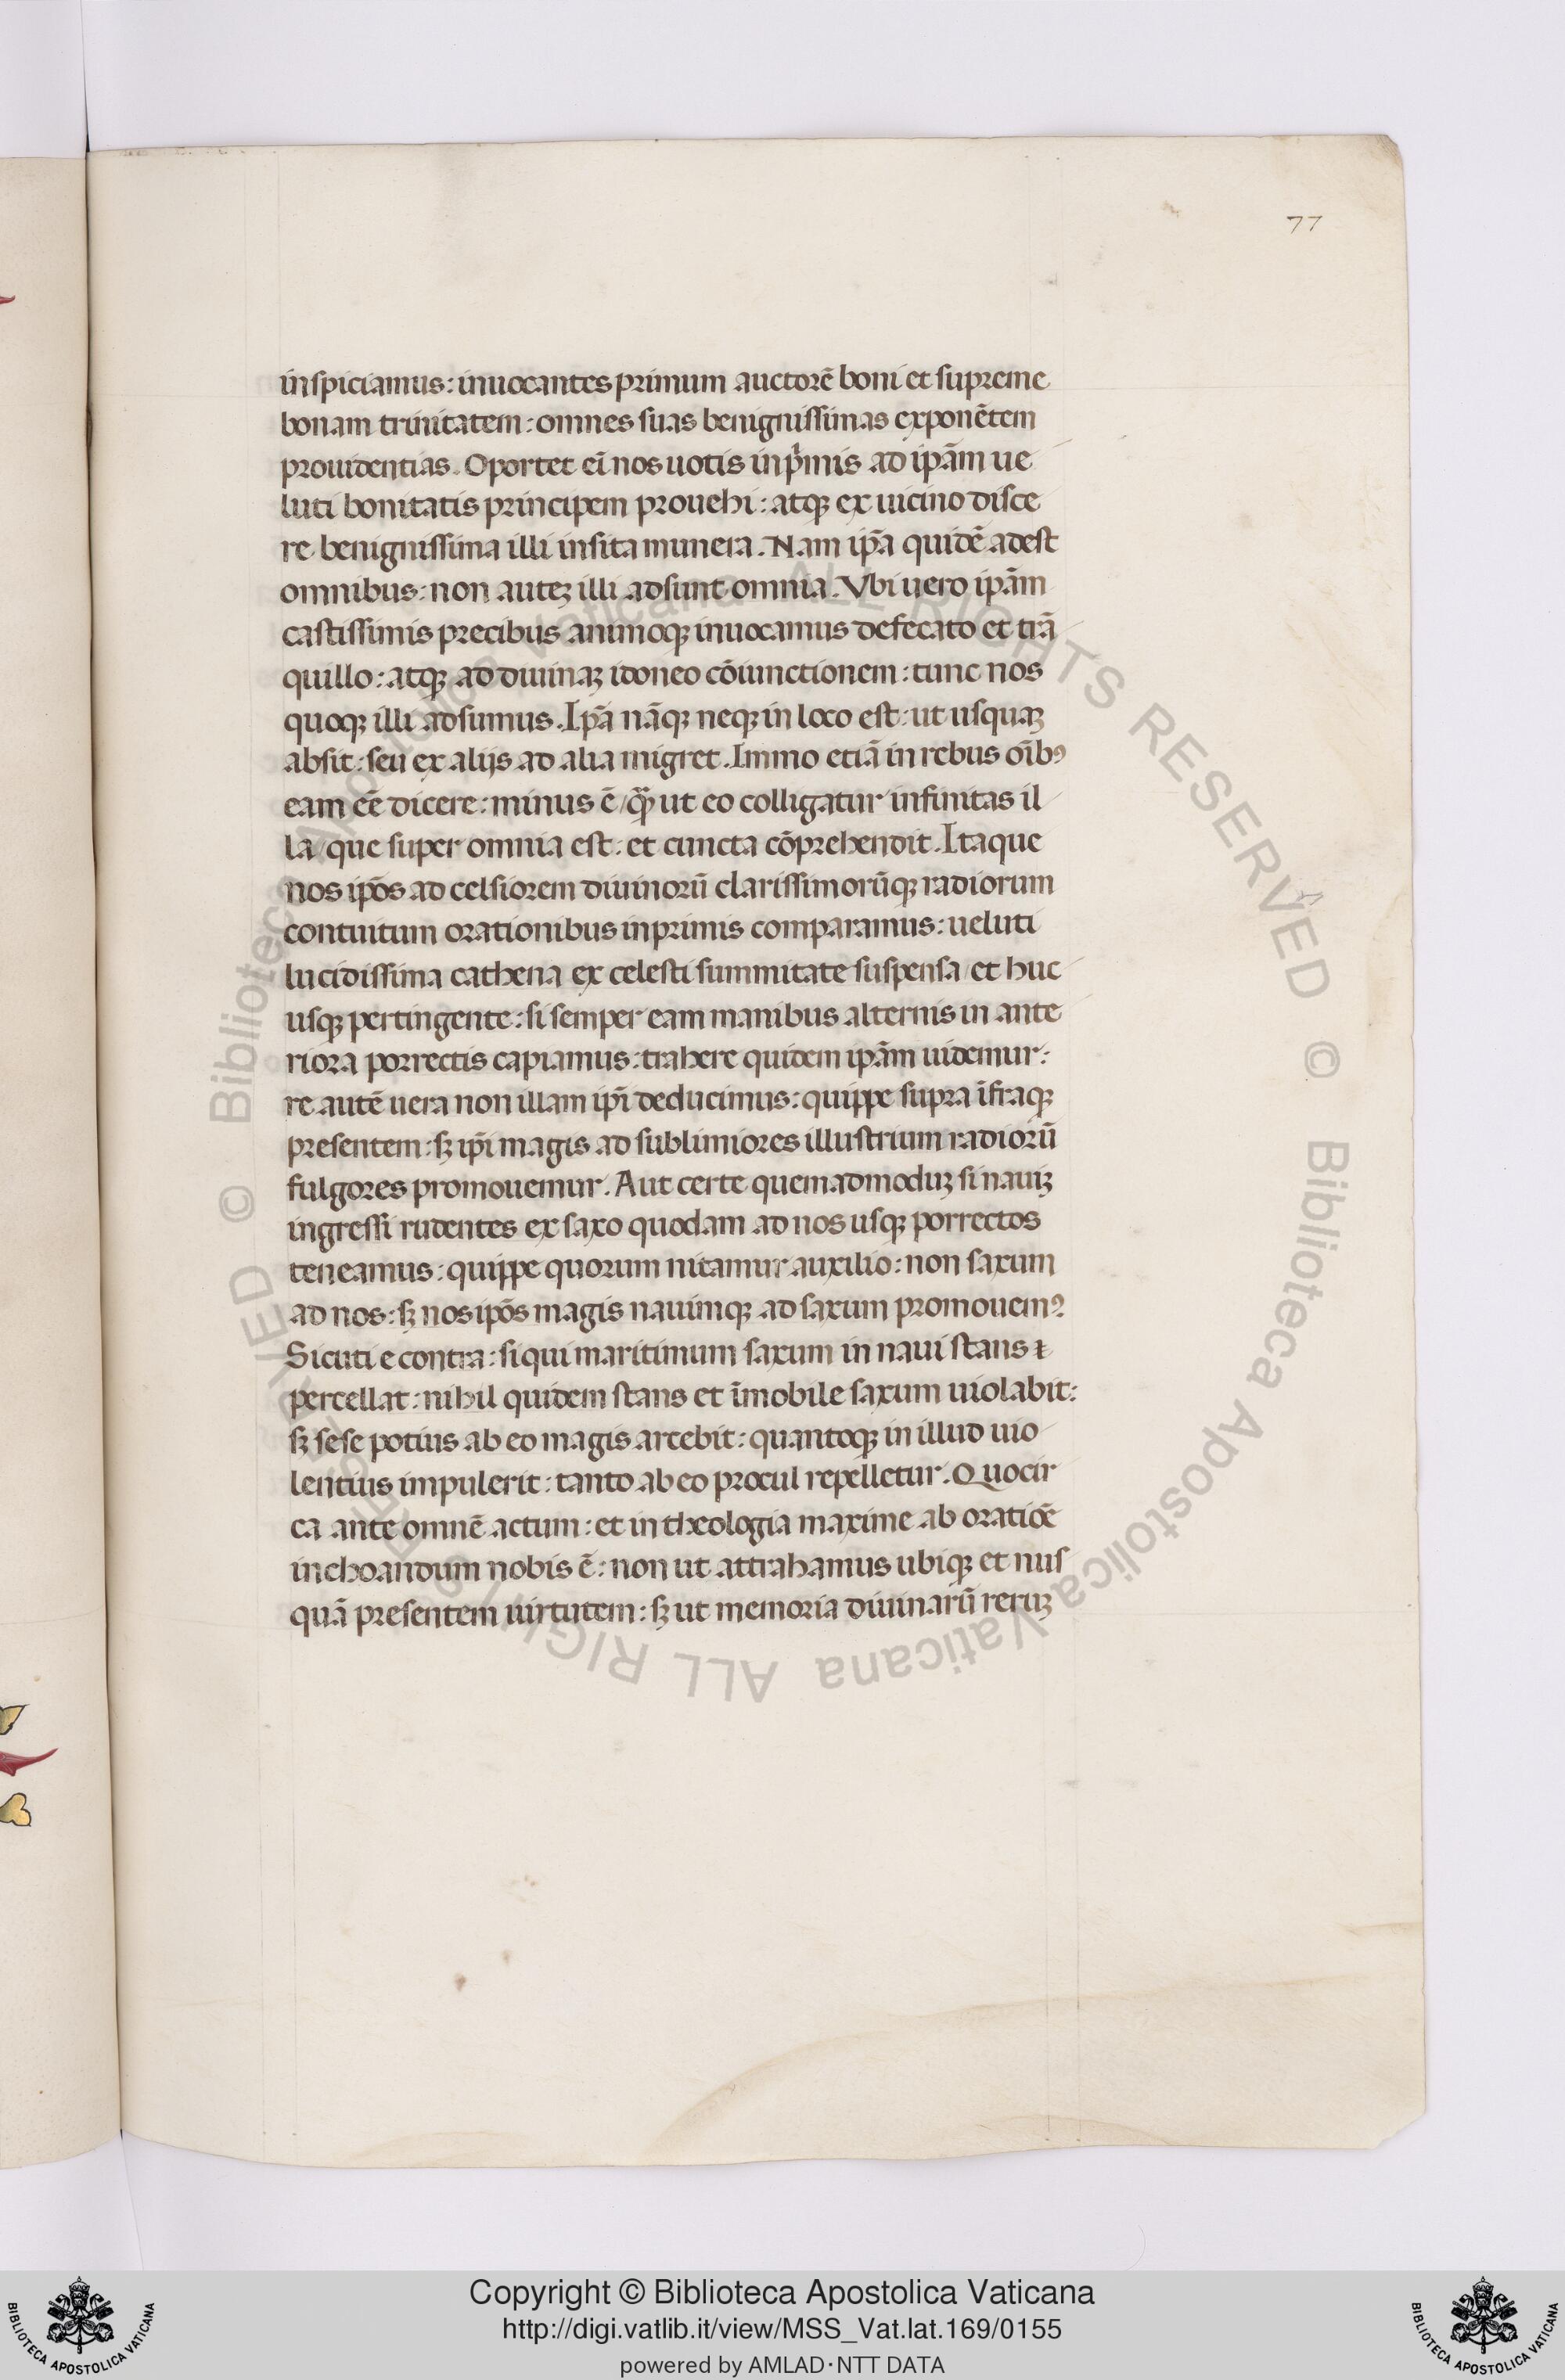 77
inspiciamus: inuocantes primum auctorē boni et supreme
bonam trinitatem: omnes suas benignissimas exponētem
prouidentias. Oportet ei̅ nos uotis inpͥmis ad ip̄am ue
luti bonitatis principem prouehi: atqꝫ ex uicino disce
re benignissima illi insita munera. Nam ip̄a quidē adest
omnibus: non auteꝫ illi adsunt omnia. Vbi uero ip̄am
castissimis precibus animoqꝫ inuocamus defecato et trā
quillo: atqꝫ ad diuinaꝫ idoneo cōiunctionem: tunc nos
quoqꝫ illi adsumus. Ip̄a nāqꝫ neqꝫ in loco est: ut usquaꝫ
absit: seu ex alijs ad alia migret. Immo etiā in rebus oībꝰ
eam eē dicere: minus ē / qꝫ̄ ut eo colligatur infinitas il
la / que super omnia est: et cuncta cōprehendit. Itaque
nos ip̄os ad celsiorem diuinorū clarissimorūqꝫ radiorum
contuitum orationibus inprimis comparamus: ueluti
lucidissima cathena ex celesti summitate suspensa / et huc
usqꝫ pertingente: si semper eam manibus alternis in ante
riora porrectis capiamus: trahere quidem ip̄am uidemur:
re autē uera non illam ip̄i deducimus: quippe supra īfraqꝫ
presentem: sꝫ ip̄i magis ad sublimiores illustrium radiorū
fulgores promouemur. Aut certe quemadmoduꝫ si nauiꝫ
ingressi rudentes ex saxo quodam ad nos usqꝫ porrectos
teneamus: quippe quorum nitamur auxilio: non saxum
ad nos: sꝫ nos ip̄os magis nauimqꝫ ad saxum promouemꝰ.
Sicuti e contra: si qui maritimum saxum in naui stans ꝛ
percellat: nihil quidem stans et īmobile saxum uiolabit:
sꝫ sese potius ab eo magis arcebit: quantoqꝫ in illud uio
lentius impulerit: tanto ab eo procul repelletur. Quocir
ca ante omnē actum: et in theologia maxime ab oratiōe
inchoandum nobis ē: non ut attrahamus ubiqꝫ et nus
quā presentem uirtutem: sꝫ ut memoria diuinarū reruꝫ
© Biblioteca Apostolica Vaticana ALL RIGHTS RESERVED
© Biblioteca Apostolica Vaticana ALL RIGHTS RESERVED
Copyright © Biblioteca Apostolica Vaticana
http://digi.vatlib.it/view/MSS_Vat.lat.169/0155
powered by AMLAD·NTT DATA
BIBLIOTECA APOSTOLICA VATICANA
BIBLIOTECA APOSTOLICA VATICANA